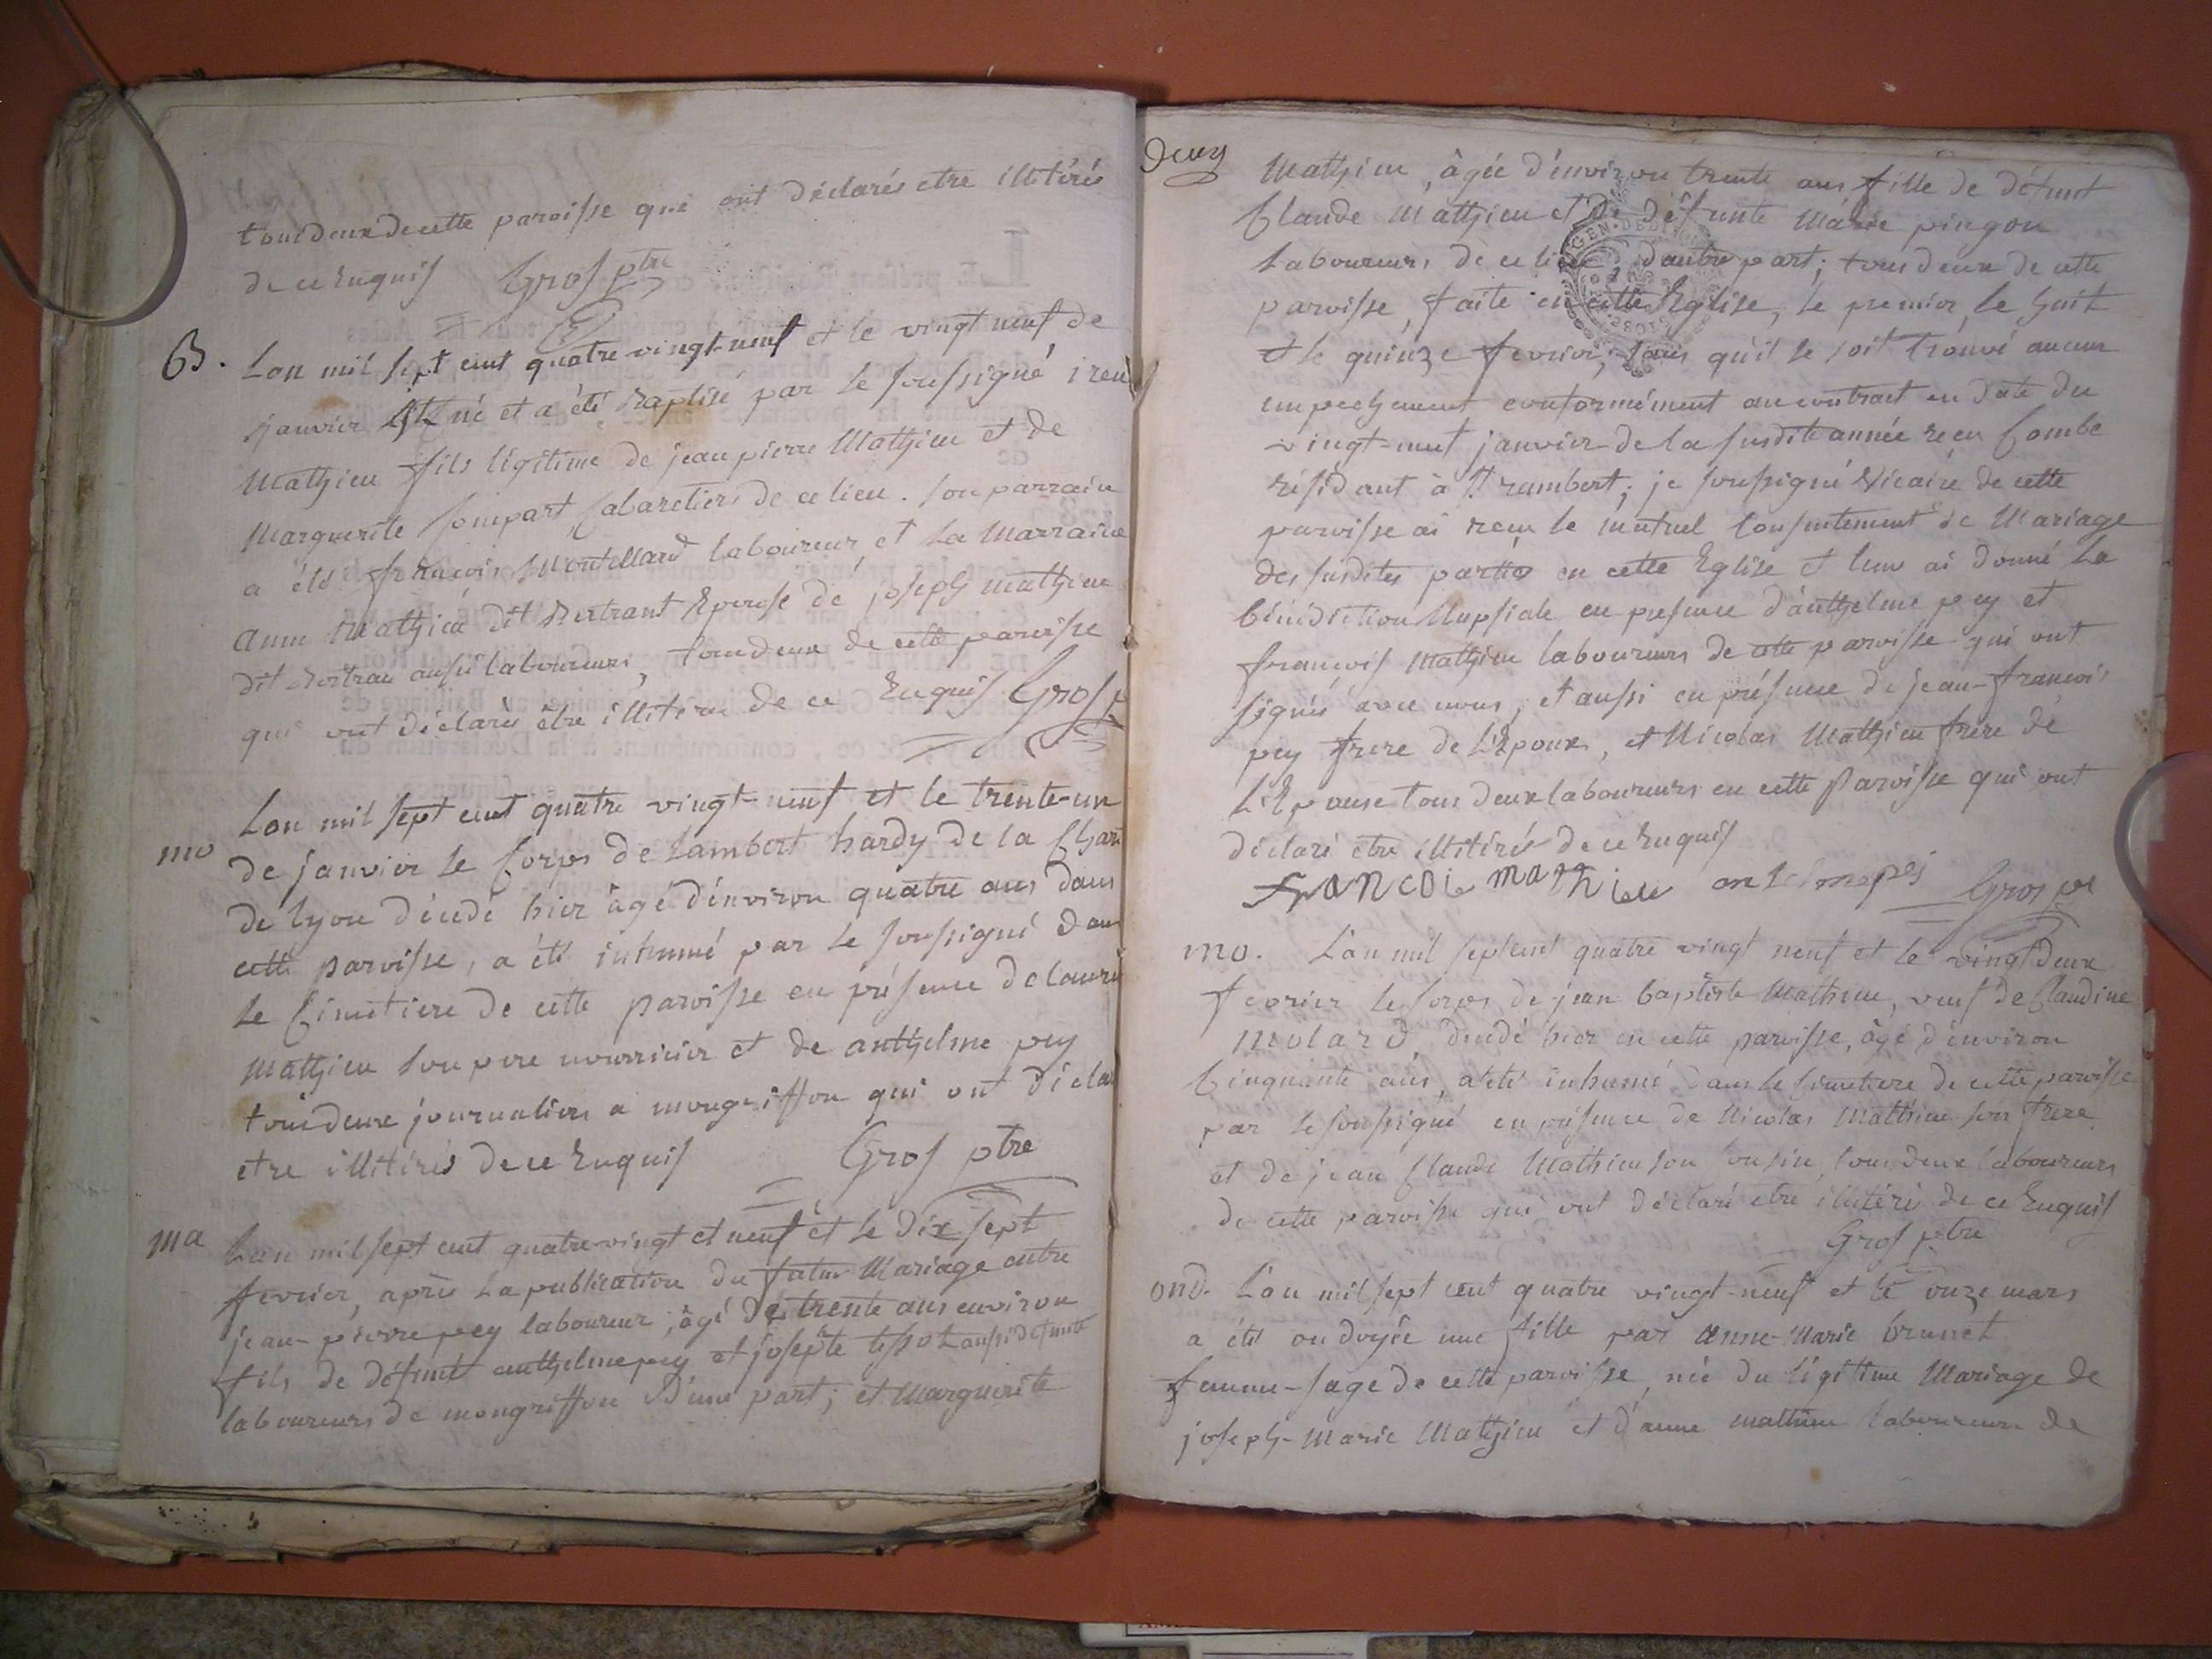 tous deux de cette paroisse qui ont déclarés etre illitérés
de ce Enquis Gros ptre
B. L'an mil sept cent quatre vingt-neuf et le vingt neuf de
janvier est né et a été Baptisé par le soussigné, irené
Mathieu fils légitime de jean pierre Mathieu et de
Marguerite Compart, Cabaretiers de ce lieu. Son parrain
a été françois Montillard laboureur, et La Marraine
anne Mathieu dit Bertrant Epouse de joseph mathieu
dit Bertran aussi laboureurs, tous deux de cette paroisse
qui ont déclarés être illitérés de ce Enquis Gros p
mo L'an mil sept cent quatre vingt-neuf et le trente-un
de janvier le Corps de Lambert hardy de la Chari
de lyon décédé hier âgé d'environ quatre ans dans
cette paroisse, a été inhumé par le soussigné dans
le Cimetiere de cette paroisse en présence de laurent
Mathieu son pere nourricier et de anthelme pey
tous deux journaliers a mongriffon qui ont décla
etre illitérés de ce Enquis Gros ptre
ma L'an mil sept cent quatre-vingt et neuf et le dix sept
fevrier, après La publication du futur Mariage entre
jean-pierre pey laboureur, âgé de trente ans environ
fils de défunt anthelme pey et josepte tissot aussi défunte
laboureurs de mongriffon D'une part; et Marguerite
deux
Mathieu, âgée d'environ trente ans fille de défunt
Claude Mathieu et de défunte Marie pingon
Laboureurs de ce lieu d'autre part; tous deux de cette
paroisse, faite en cette Eglise, le premier, le huit
et le quinze fevrier, sans qu'il se soit trouvé aucun
empechement conformément au contract en date du
vingt-neuf janvier de la susdite année recu Combe
résidant à St. rambert; je soussigné Vicaire de cette
paroisse ai recu le mutuel Consentement de Mariage
des susdites parties en cette Eglise et leur ai donné La
bénédiction Nupsiale en presence d'anthelme pey et
françois Mathieu laboureurs de cette paroisse qui ont
signés avec nous, et aussi en présence de jean-françois
pey frere de L'Epoux, et Nicolas Mathieu frere de
L'Epouse tous deux laboureurs en cette Paroisse qui ont
déclaré etre illitérés de ce Enquis
franCois mathieu antelme pei Gros ptre
mo. L'an mil sept cent quatre vingt neuf et le vingt deux
fevrier le Corps de jean baptiste Mathieu, veuf de Claudine
Molard, décédé hier en cette paroisse, âgé d'environ
Cinquante ans, a été inhumé dans le Cimetiere de cette paroisse
par le soussigné en présence de Nicolas Mathieu son frere
et de jean Claude Mathieu son Cousin, tous deux laboureurs
de cette paroisse qui ont déclaré etre illitéré de ce Enquis
Gros ptre
ond. L'an mil sept cent quatre vingt-neuf et le onze mars
a été ondoyée une fille par anne-Marie brunet
femme-sage de cette paroisse, née du légitime Mariage de
joseph-Marie Mathieu et d'anne mathieu laboureurs de